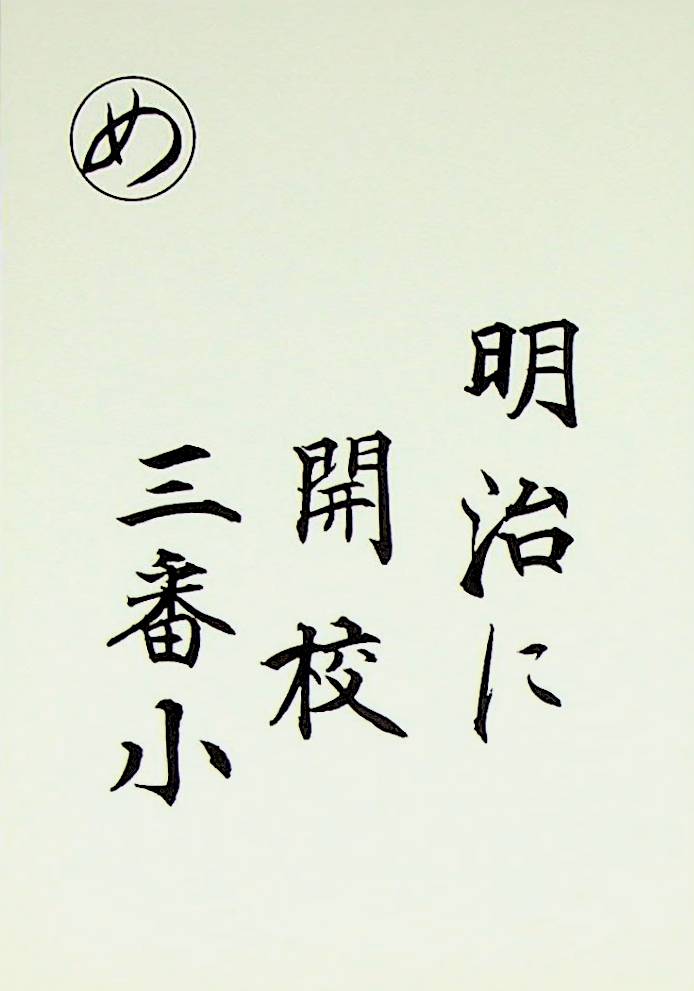 め
明治に
開校
三番小